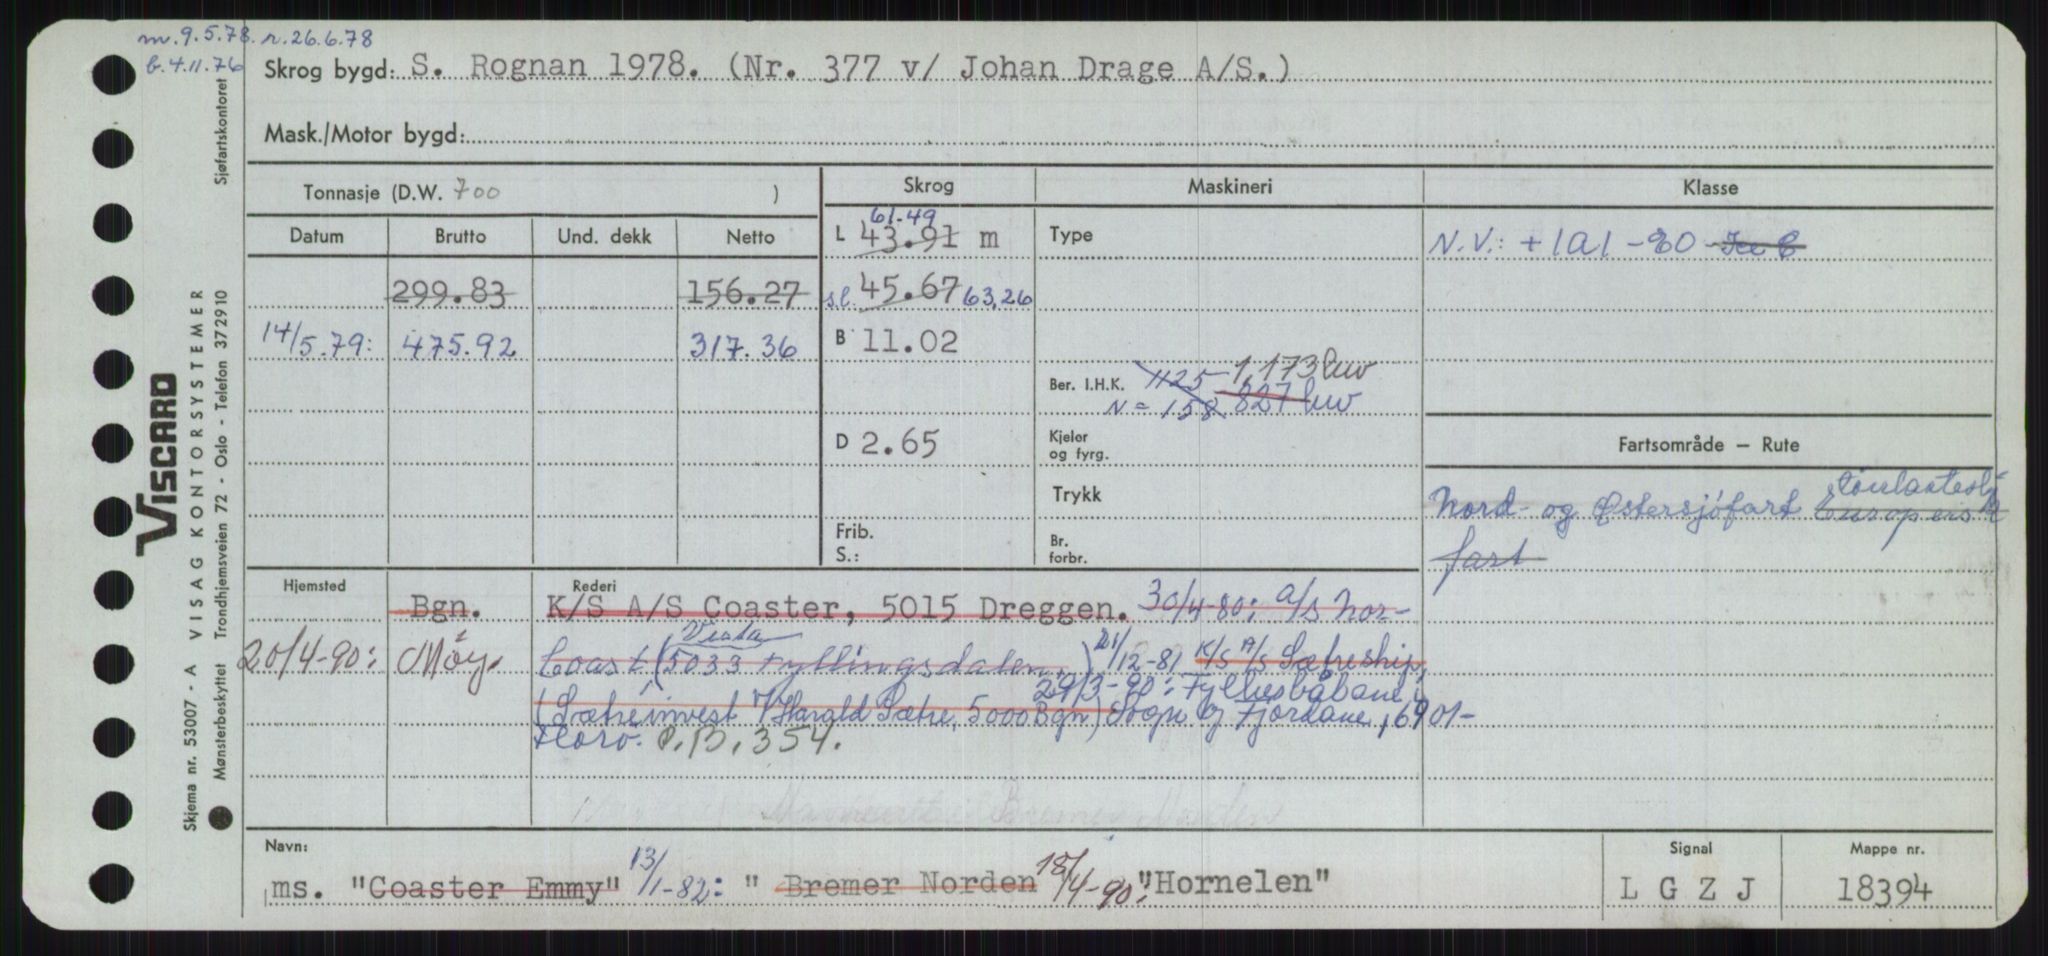 m. 9.5.78. r. 26.6.78
b. 4.11.76
Skrog bygd: S. Rognan 1978. (Nr. 377 v/ Johan Drage A/S.)
Mask./Motor bygd:
Sjøfartskontoret
Tonnasje (D.W. 700 )
Skrog
Maskineri
Klasse
Datum
Brutto
Und. dekk
Netto
61.49
L 43.91 m
Type
N.V.: + 1A1 - 80 - Ice C
299.83
156.27
s.l. 45.67 63,26
14/5.79:
475.92
317.36
B 11.02
Ber. I.H.K. 1125 - 1,173 kw
N = 158 827 kw
D 2.65
Kjeler
og fyrg.
Fartsområde – Rute
Trykk
Nord- og Østersjøfart Europeisk
fart
Frib.
S.:
Br.
forbr.
Hjemsted
Rederi
Bgn.
K/S A/S Coaster, 5015 Dreggen. 30/4-80: A/S Nor-
20/4-90: Måy.
Coast (5033 Fyllingsdalen) 21/12-81 K/S A/S Sætreship,
29/3-90: Fylkesbåtane i
(Sætreinvest v/Harald Sætre, 5000 Bgn) Sogn og Fjordane, 6901-
Florø. P.B. 354.
Bremer Norden
Navn:
Signal
Mappe nr.
ms. "Coaster Emmy" 13/1-82: " Bremer Norden 18/4-90: "Hornelen"
L G Z J
18394
VISCARD
Skjema nr. 53007 - A VISAG KONTORSYSTEMER
Mønsterbeskyttet Trondhjemsveien 72 - Oslo - Telefon 372910